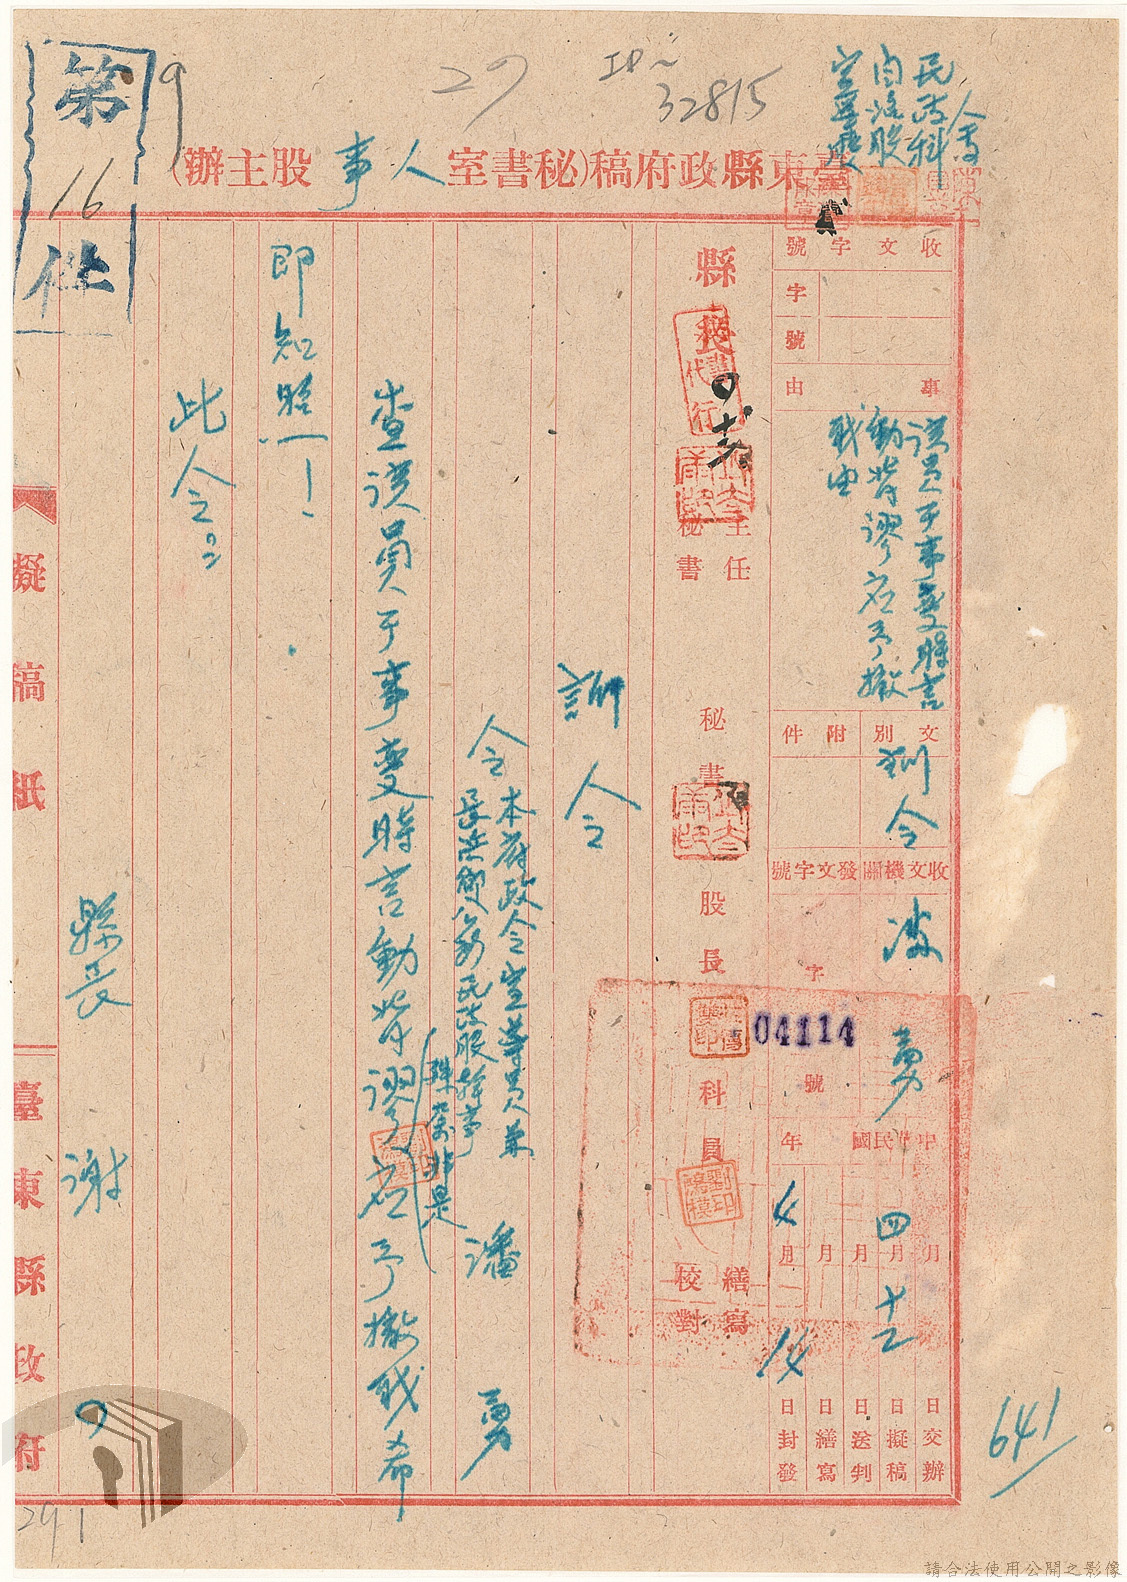 民政科
自治股
人事
臺東縣政府稿(秘書室人事股主辦)
29
32815
第16件
收文字號
字號
事由
該員于事變時言
動背謬應予撤
職由
文別
訓令
附件
收文機關
發文字號
字
04114
號
中華民國
年
四月十二
4月14
月
月
月
日交辦
日擬稿
日送判
日繕寫
日封發
縣長
秘書代行
主任秘書
秘書
股長
科員
繕寫
校對
訓令
令本府政令宣導員兼
長濱鄉公所民政股幹事
潘
勇
查該員于事變時言動背謬
殊屬非是
應予撤職希
即知照!
此令。
縣長
謝
擬稿紙
臺東縣政府
641
291
請合法使用公開之影像